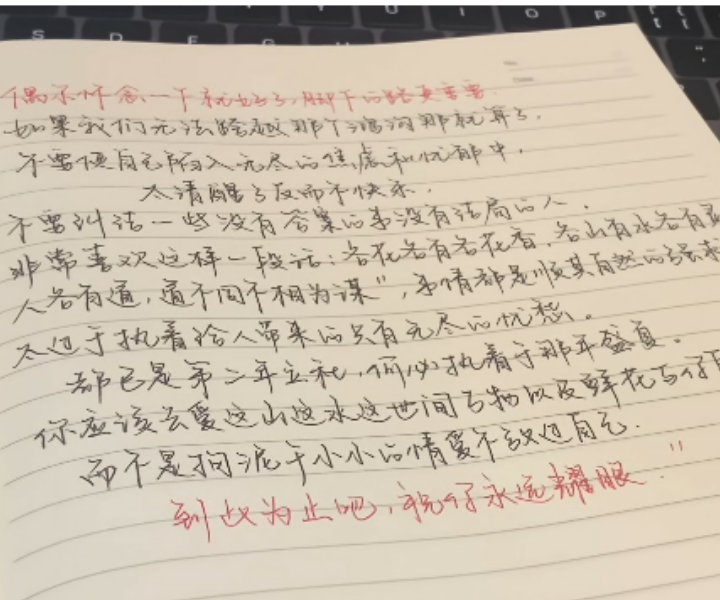 S D F U I O P
偶尔怀念一下就好了，脚下的路更重要
如果我们无法跨越那个鸿沟那就算了.
不要使自己陷入无尽的焦虑和忧郁中.
太清醒了反而不快乐.
不要纠结一些没有答案的事没有结局的人.
非常喜欢这样一段话：各花各有各花香，各山有水各有
人各有道，道不同不相为谋”，事情都是顺其自然的
太过于执着给人带来的只有无尽的忧愁。
都已是第二年立秋，何必执着于那年盛夏.
你应该去爱这山这水这世间万物以及鲜花与
而不是拘泥于小小的情爱不放过自己.
到此为止吧，祝你永远耀眼.”